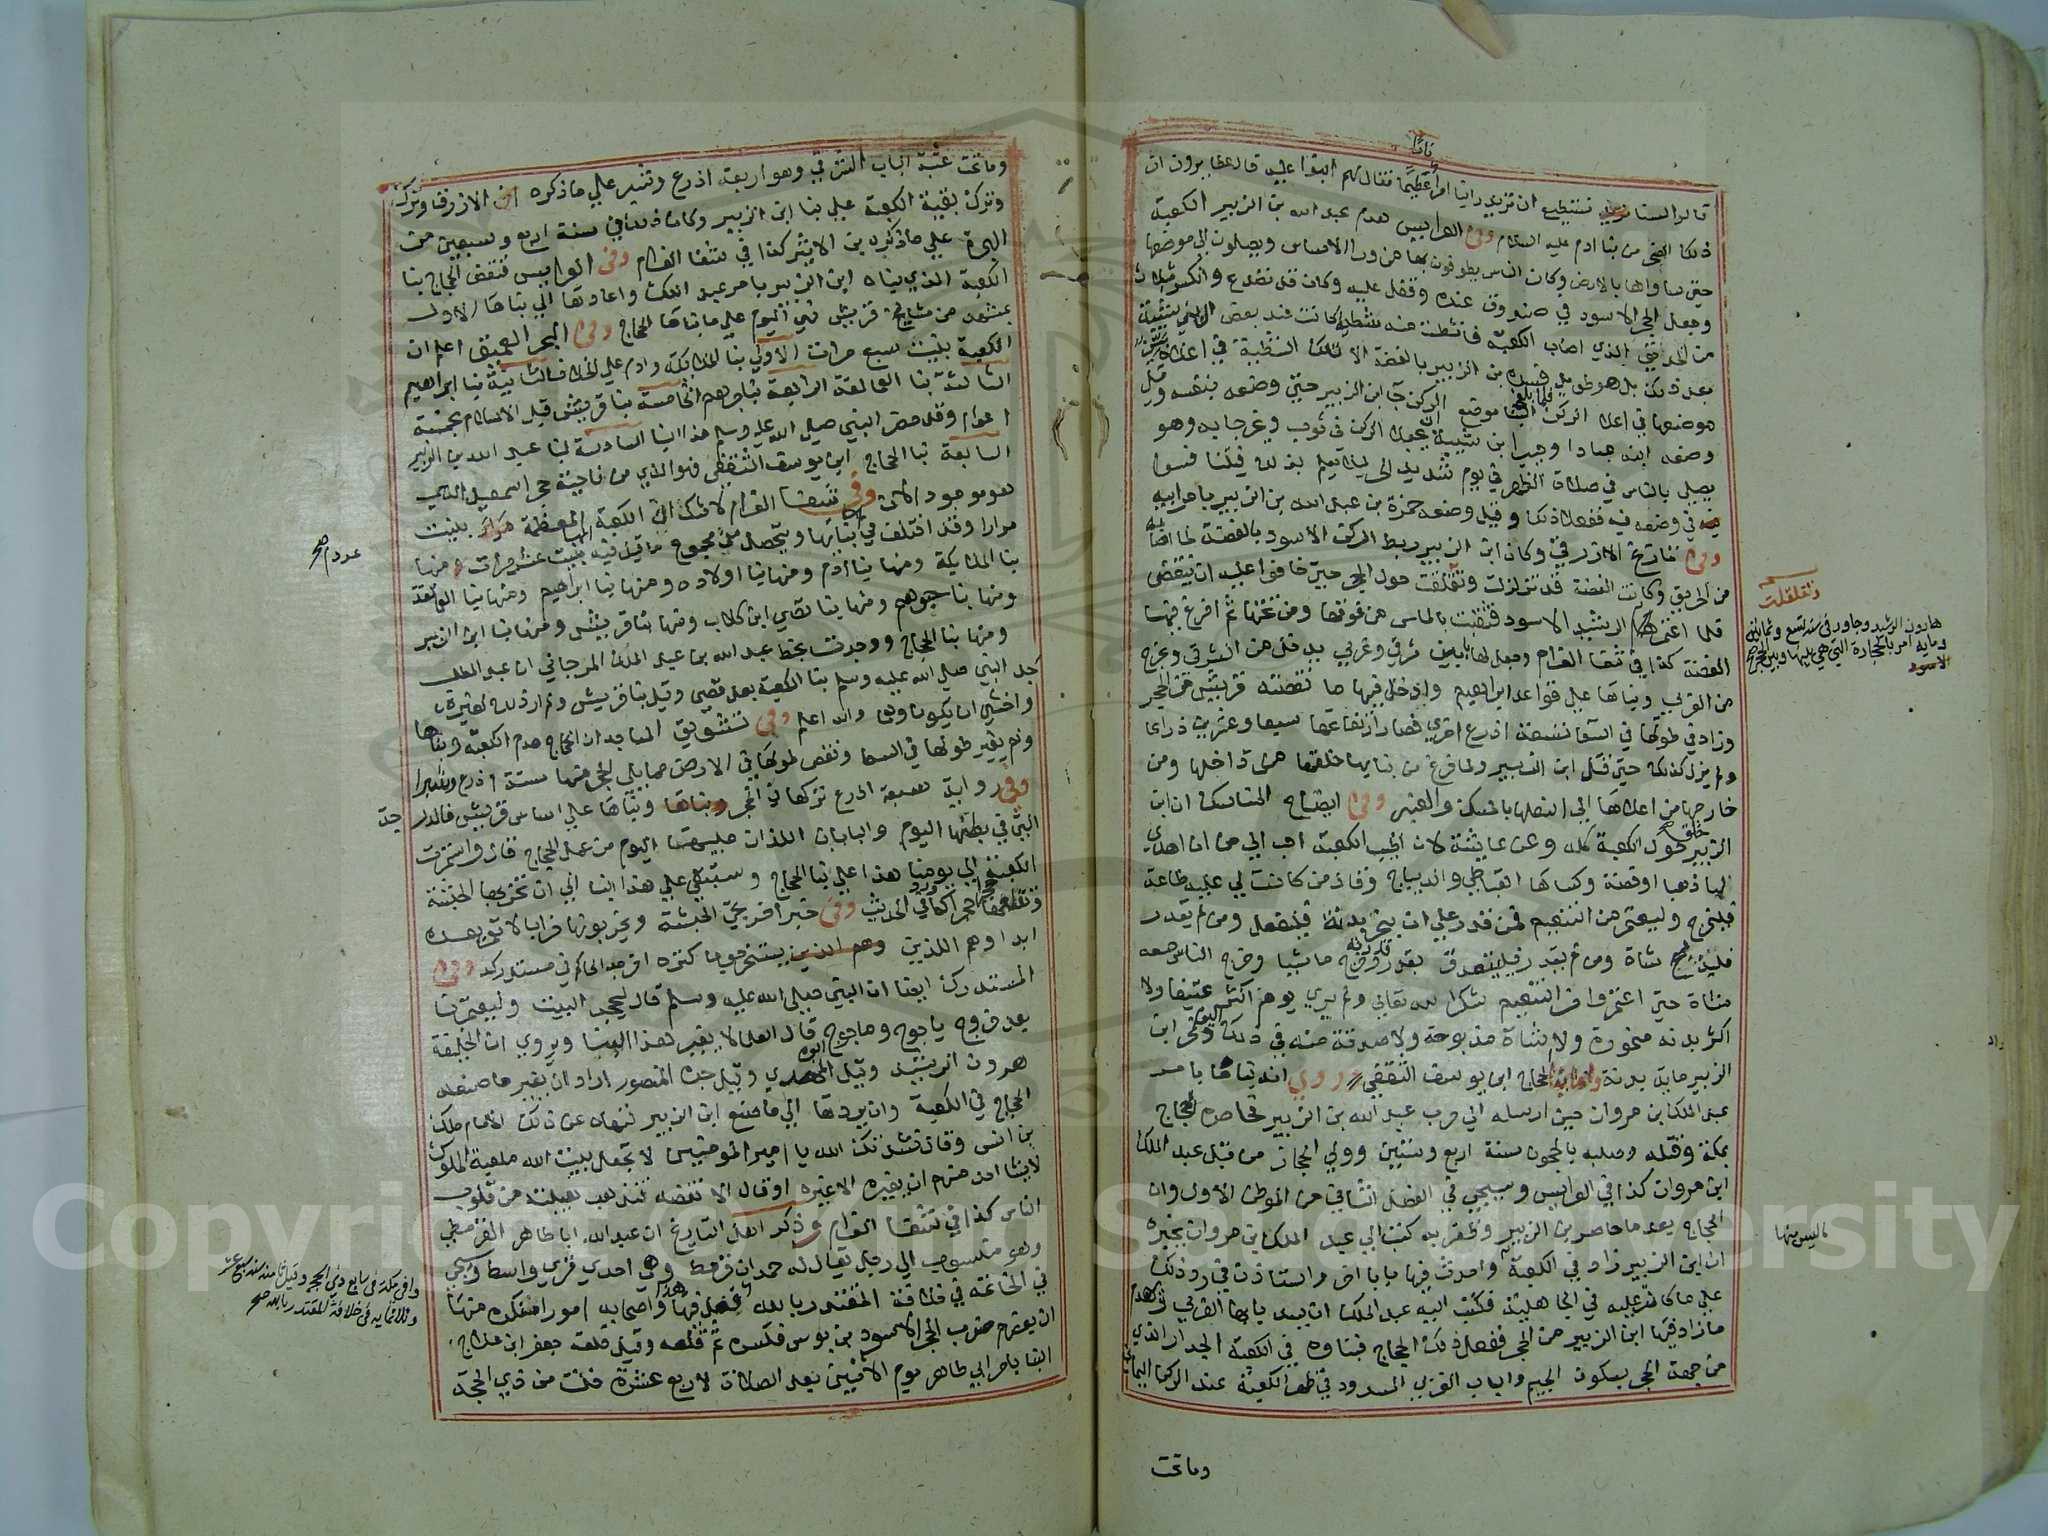 قالوا لسنا نستطيع ان نزيد راينا امرا عظيما فقال لهم ابنوا عليه قال عطا يرون ان
ذلك الصخر من بنا ادم عليه السلام وفي العرايس هدم عبد الله بن الزبير الكعبة
حتى ساواها بالارض وكان الناس يطوفون بها من ورا الاساس ويصلون الى موضعها
وجعل الحجر الاسود في صندوق عنده وقفل عليه وكان قد تصدع وانكسر بثلاث
من الحريق الذي اصاب الكعبة فانشظت منه شظية كانت عند بعض ال بني شيبة
بعد ذلك بدهر طويل فشده بن الزبير بالفضة الا تلك الشظية في اعلاه
موضعها في اعلا الركن فلما بلغ البنا موضع الركن جا ابن الزبير حتى وضعه بنفسه وقيل
وضعه ابنه عبادا وجبير ابن شيبة الركن في ثوب وخرجا به وهو
يصلي بالناس في صلاة الظهر في يوم شديد الحر ليلا يعلم بذلك
في وضعه فيه ففعلا ذلك وقيل وضعه حمزة بن عبد الله بن الزبير بامر ابيه
وفي تاريخ الازرقي وكان ابن الزبير ربط الركن الاسود بالفضة لما اصابه
من الحريق وكانت الفضة قد تزلزلت وتقلقلت حول الحجر حتى خافوا عليه ان ينقض
فلما اعتمر الرشيد الاسود فنقبت بالماس من فوقها ومن تحتها ثم افرغ فيها
الفضة كذا في شفا الغرام وجعل لها بابين شرقي وغربي يدخل من الشرقي ويخرج
من الغربي وبناها على قواعد ابراهيم وادخل فيها ما نقصته قريش من الحجر
وزاد في طولها في السما تسعة اذرع اخرى فصار ارتفاعها سبعا وعشرين ذراعا
ولم يزل كذلك حتى قتل ابن الزبير ولما فرغ من بنايها خلقها من داخلها ومن
خارجها من اعلاها الى اسفلها بالمسك والعنبر وفي ايضاح المناسك ان ابن
الزبير خلق جوف الكعبة كله وعن عايشة لان اطيب الكعبة احب الي من ان اهدي
لها ذهبا او فضة وكساها القباطي والديباج وقال من كانت لي عليه طاعة
فليخرج وليعتمر من التنعيم فمن قدر على ان ينحر بدنة فليفعل ومن لم يقدر
فليذبح شاة ومن لم يقدر فليتصدق بقدر قدرته وخرج ماشيا وخرج الناس معه
مشاة حتى اعتمروا من التنعيم شكرا لله تعالى ولم يرى يوم اكثر عتيقا ولا
اكثر بدنة منحورة ولا شاة مذبوحة ولا صدقة منه في ذلك اليوم ونحر ابن
الزبير ماية بدنة واما بنا الحجاج ابن يوسف الثقفي وروي انه بناها بامر
عبد الملك بن مروان حين ارسله الى حرب عبد الله بن الزبير فحاصره الحجاج
بمكة وقتله وصلبه بالحجون سنة اربع وستين وولي الحجاز من قبل عبد الملك
ابن مروان كذا في العرايس وسيجيي في الفصل الثاني من الموطن الاول وان
الحجاج بعد ما حاصر بن الزبير وظفر به كتب الى عبد الملك بن مروان يخبره
ان ابن الزبير زاد في الكعبة واحدث فيها بابا اخر واستاذن في رد ذلك
على ما كانت عليه في الجاهلية فكتب اليه عبد الملك ان يسد بابها الغربي وهدم
ما زاد فيها ابن الزبير من الحجر ففعل ذلك الحجاج فبناوه في الكعبة الجدار الذي
من جهة الحجر بسكون الجيم والباب الغربي المسدود في ظهر الكعبة عند الركن اليماني
وما تحت
وتقلقلت
هارون الرشيد وجاور في سنة تسع وثمانين
وماية امر بالحجارة التي هي بينها وبين الحجر
الاسود
ما ليس منها
وما تحت عتبة الباب الشرقي وهو اربعة اذرع وشبر على ما ذكره الازرقي وترك
وترك بقية الكعبة على بنا ابن الزبير وكان ذلك في سنة اربع وسبعين من
الهجرة على ما ذكره بن الاثير كذا في شفا الغرام وفي العرايس فنقض الحجاج بنا
الكعبة الذي بناه ابن الزبير بامر عبد الملك واعادها الى بناها الاول
بمشهد من مشايخ قريش فهي اليوم على ما بناها الحجاج وفي البحر العميق اعلم ان
الكعبة بنيت سبع مرات الاولى بنا الملايكة وادم على الخلاف الثانية بنا ابراهيم
الثالثة بنا العمالقة الرابعة بنا جرهم الخامسة بنا قريش قبل الاسلام بخمسة
اعوام وقد حضر النبي صلى الله عليه وسلم هذا البنا السادسة بنا عبد الله بن الزبير
السابعة بنا الحجاج ابن يوسف الثقفي فهو الذي من ناحية حجر اسمعيل الذي
هو موجود الان وفي شفا الغرام لا شك ان الكعبة المعظمة بنيت
مرارا وقد اختلف في بنايها ويتحصل من مجموع ما قيل فيه بنيت عشر مرات منها
بنا الملايكة ومنها بنا ادم ومنها بنا اولاده ومنها بنا ابراهيم ومنها بنا العمالقة
ومنها بنا جرهم ومنها بنا قصي ابن كلاب ومنها بنا قريش ومنها بنا ابن الزبير
ومنها بنا الحجاج ووجدت بخط عبد الله بن عبد الملك المرجاني ان عبد المطلب
جد النبي صلى الله عليه وسلم بنا الكعبة بعد قصي وقبل بنا قريش ولم ار ذلك لغيره
واخشى ان يكون وهما والله اعلم وفي تشويق الساجد ان الحجاج هدم الكعبة وبناها
ولم يغير طولها في السما ونقص طولها في الارض مما يلي الحجر منها ستة اذرع وشبرا
وفي رواية سبعة اذرع تركها في الحجر وبناها على اساس قريش فالدار
التي في بطنها اليوم والبابان اللذان عليها اليوم من عمل الحجاج قال واستمرت
الكعبة الى يومنا هذا على بنا الحجاج وستبقى على هذا البنا الى ان تخربها الحبشة
وتقلعها حجرا حجرا كما ورد في الحديث وفي خبر اخر يجيي الحبشة ويخربونها خرابا لا تعمر بعده
ابدا وهم الذين يستخرجون كنزه اخرجه الحاكم في مستدركه وفي
المستدرك ايضا ان النبي صلى الله عليه وسلم قال ليحجن البيت وليعتمرن
بعد خروج ياجوج وماجوج قال العلما لا يغير هذا البنا ويروى ان الخليفة
هرون الرشيد وقيل ابوه المهدي وقيل جده المنصور اراد ان يغير ما صنعه
الحجاج في الكعبة وان يردها الى ما صنع ابن الزبير فنهاه عن ذلك الامام مالك
بن انس وقال نشدتك الله يا امير المومنين لا تجعل بيت الله ملعبة للملوك
لا يشا احد منهم ان يغيره الا غيره او قال الا نقضه فتذهب هيبته من قلوب
الناس كذا في شفا الغرام وذكر اهل التاريخ ان عبد الله ابا طاهر القرمطي
وهو منسوب الى رجل يقال له حمدان قرمط وهي احدى قرى واسط وسيجي
في الخاتمة في خلافة المقتدر بالله وفعل فيها هو واصحابه امور منكره منها
ان بعضهم ضرب الحجر الاسود بدبوس فكسره ثم قلعه وقيل قلعه جعفر ابن علاج
البنا بامر ابي طاهر يوم الاثنين بعد الصلاة لاربع عشرة خلت من ذي الحجة
عدد صح
جد
وافى مكة في سابع ذي الحجة وقيل ثامنه سنة سبع عشر
وثلاثمايه في خلافة المقتدر بالله صح